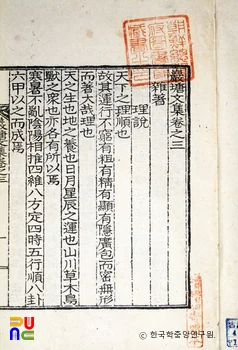 塘文集卷之三
雜著
理說
天下之理順也
故其運行不窮有粗有精有顯有隱廣包而密無形
而著大哉理也
天之生也地之養也日月星辰之運也山川草木鳥
獸之衆也亦各有所以焉
寒暑不亂陰陽相推四維八方定四時五行順八卦
六甲以之而成焉
塘文集卷之三
© 한국학중앙연구원